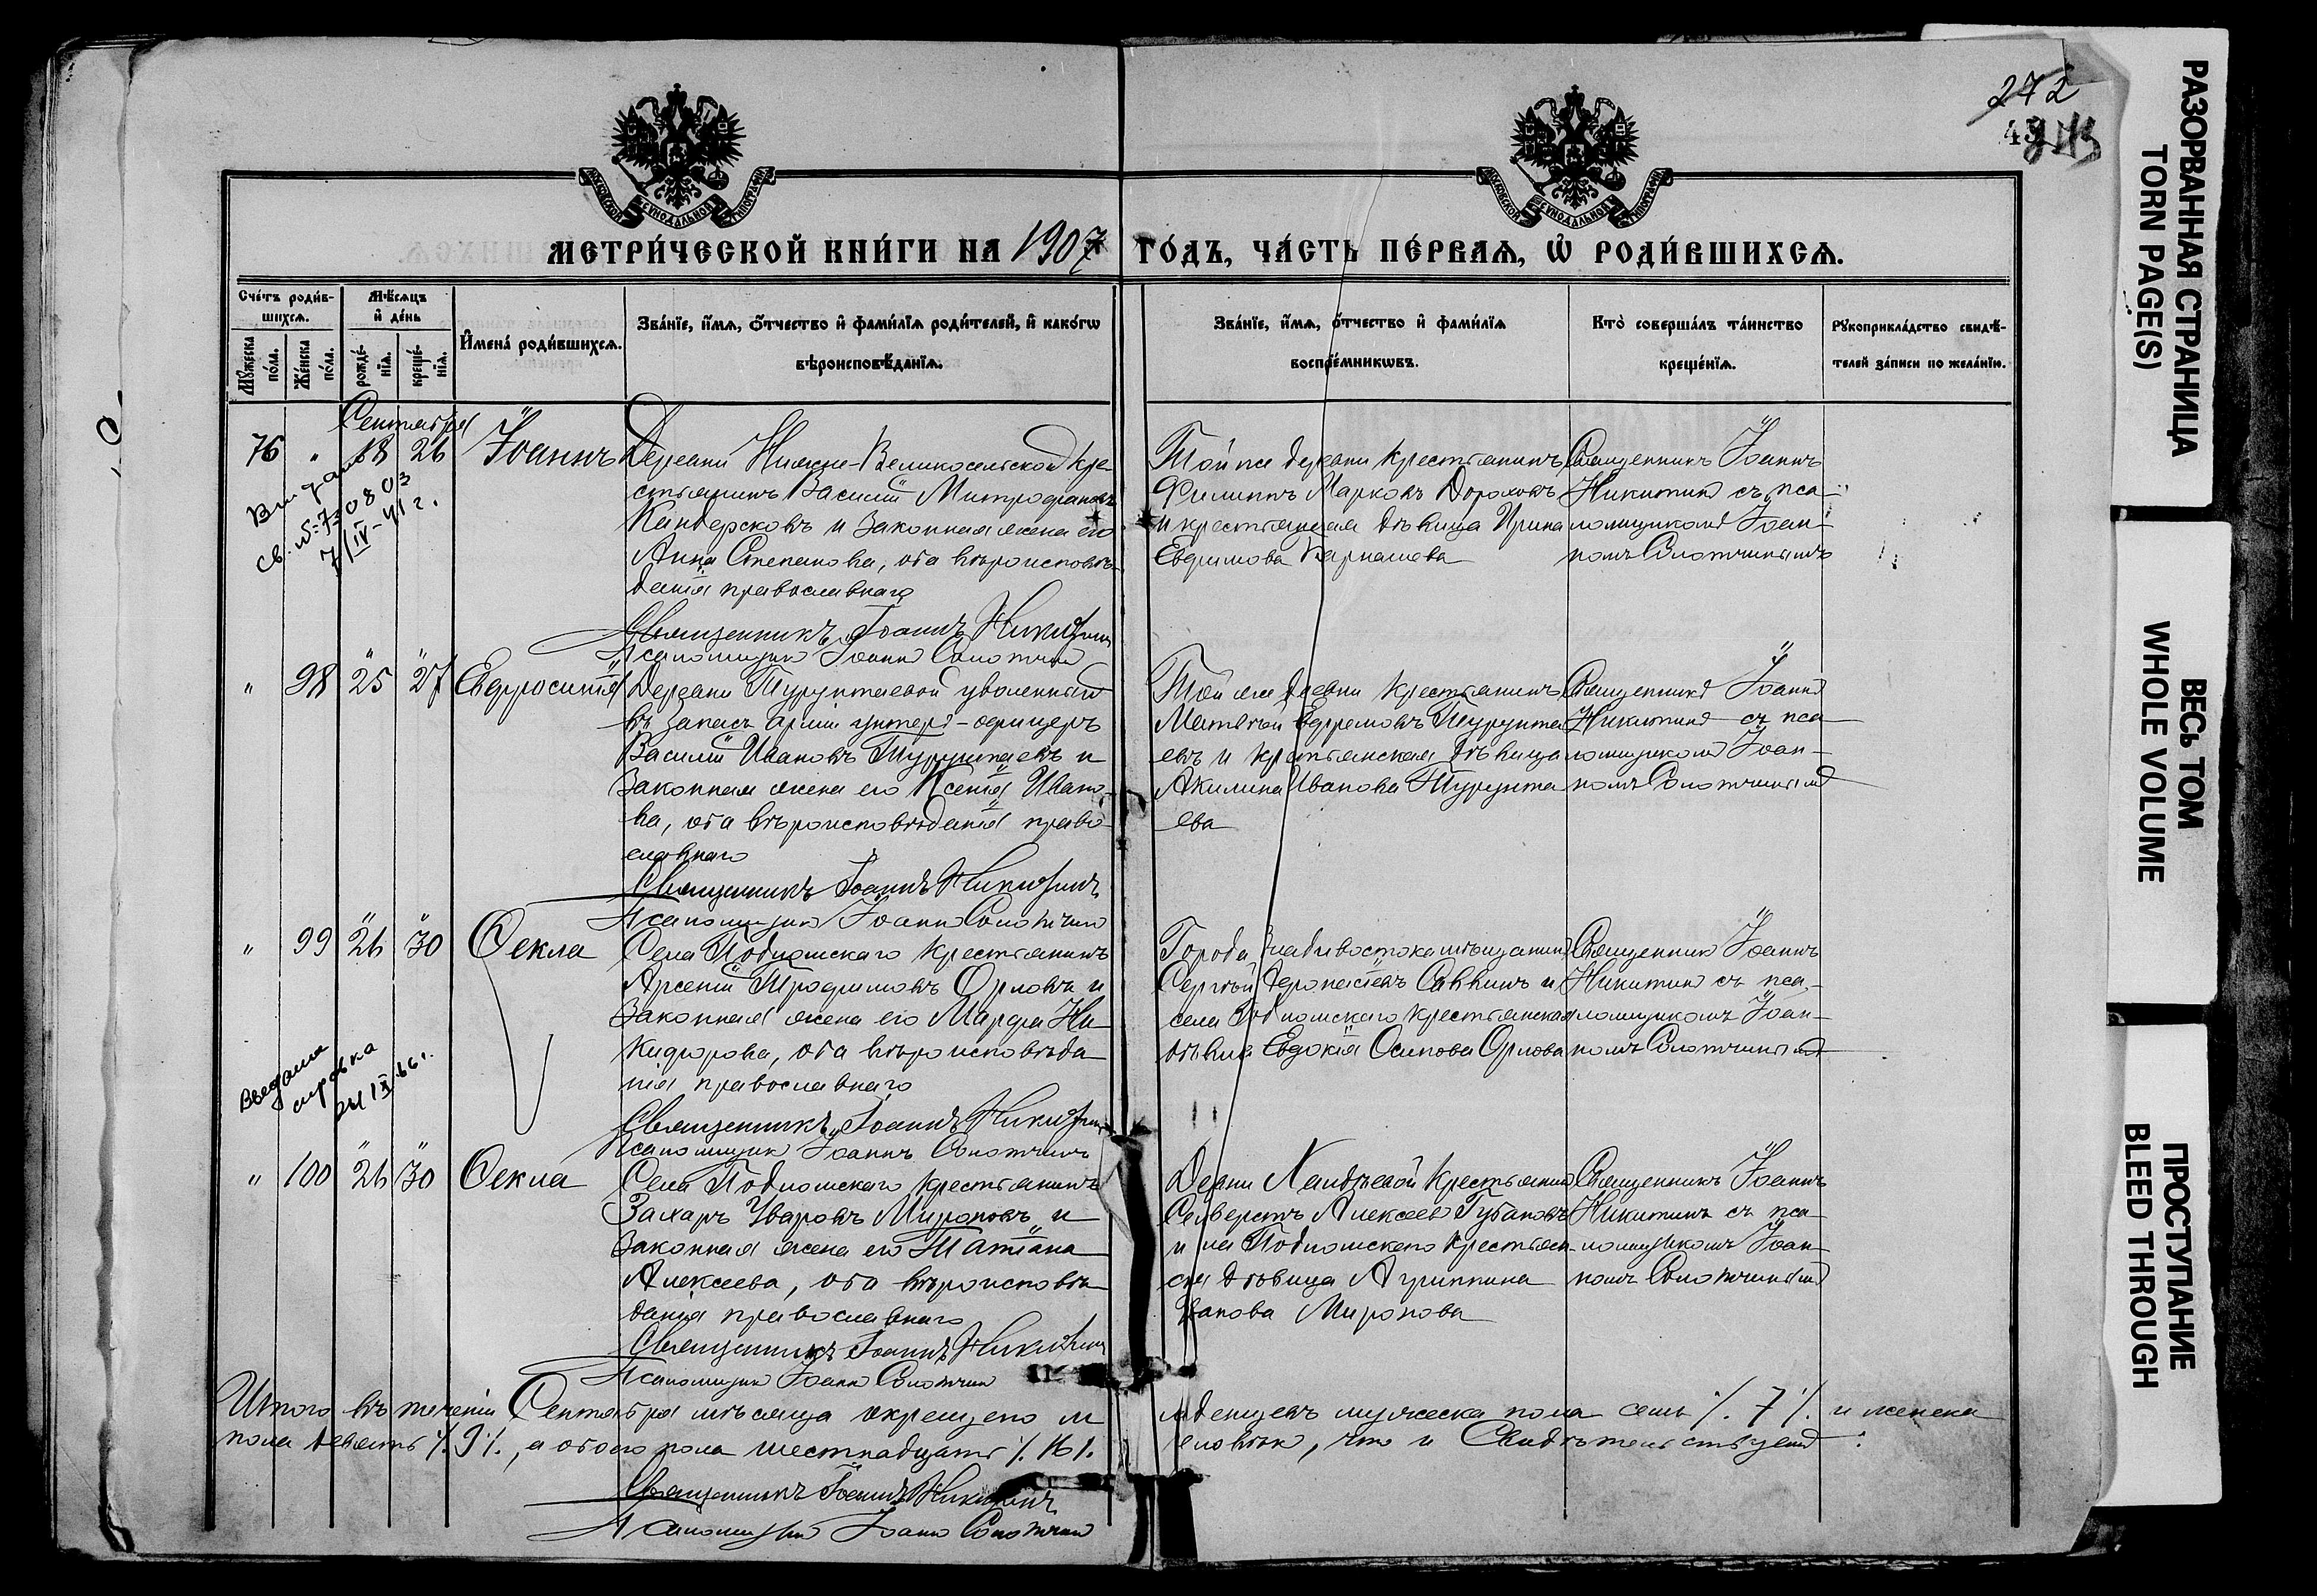 272
МОСКОВСКОЙ СѴНОДАЛЬНОЙ ТИПОГРАФІИ
МОСКОВСКОЙ СѴНОДАЛЬНОЙ ТИПОГРАФІИ
МЕТРИ́ЧЕСКОЙ КНИ́ГИ НА 1907 ГО́ДЪ, ЧА́СТЬ ПЕ́РВАѦ, Ѡ҆ РОДИ́ВШИХСѦ.
Сче́тъ роди́в-
шихсѧ.
Мѣ́сѧцъ
и҆ де́нь
Мꙋ́жеска по́ла.
Же́нска по́ла.
рожде́-
нїѧ.
креще́-
нїѧ.
И҆мена̀ роди́вшихсѧ.
Зва́нїе, и҆́мѧ, ѻ҆́тчество и҆ фамилїѧ роди́телей, и҆ како́гѡ
вѣроисповѣ́данїѧ.
Зва́нїе, и҆́мѧ, ѻ҆́тчество и҆ фами́лїѧ
воспрїе́мникѡвъ.
Кто̀ соверша́лъ та́инство
креще́нїѧ.
Рꙋкоприкла́дство свидѣ́-
телей за́писи по жела́нїю.
Сентября
76 " 18 26 Іоаннъ
Деревни Нижне-Великосельской кре
стьянинъ Василій Митрофановъ
Кандерсковъ и законная жена его
Анна Степанова, оба вѣроисповѣ-
данія православнаго
Священникъ Іоаннъ Никитинъ
Псаломщикъ Іоаннъ Солотчинъ
Той же деревни крестьянинъ
Филиппъ Марковъ Дороховъ
и крестьянская дѣвица Ирина
Евфимова Карнашева
Священникъ Іоаннъ
Никитинъ съ пса-
ломщикомъ Іоан-
номъ Солотчинымъ
Выдано
св. №: 730803
7/IV-41 г.
" 98 25 27 Евфросинія
Деревни Турунтаевой уволенный
въ запасъ арміи унтеръ-офицеръ
Василій Ивановъ Турунтаевъ и
законная жена его Ксенія Ивано-
ва, оба вѣроисповѣданія право-
славнаго
Священникъ Іоаннъ Никитинъ
Псаломщикъ Іоаннъ Солотчинъ
Той же деревни крестьянинъ
Матвѣй Ефремовъ Турунта
евъ и крестьянская дѣвица
Акилина Иванова Турунта
ева
Священникъ Іоаннъ
Никитинъ съ пса
ломщикомъ Іоан-
номъ Солотчинымъ
" 99 26 30 Ѳекла
Села Подломскаго крестьянинъ
Арсеній Трофимовъ Орловъ и
законная жена его Марфа Ни-
кифорова, оба вѣроисповѣда
нія православнаго
Священникъ Іоаннъ Никитинъ
Псаломщикъ Іоаннъ Солотчинъ
Города Владивостока мѣщанинъ
Сергѣй Савкинъ и
села Подломскаго крестьянская
дѣвица Евдокія Осипова Орлова
Священникъ Іоаннъ
Никитинъ съ пса-
ломщикомъ Іоан-
номъ Солотчинымъ
Выдана
справка
IX 66 г.
" 100 26 30 Ѳекла
Села Подломскаго крестьянинъ
Захаръ Уваровъ Мироновъ и
законная жена его Татіана
Алексеева, оба вѣроисповѣ
данія православнаго
Священникъ Іоаннъ Никитинъ
Псаломщикъ Іоаннъ Солотчинъ
Девни Халдѣевой крестьянинъ
Селверстъ Алексеевъ Губановъ
и Подломскаго крестьян-
ская дѣвица Агриппина
Миронова
Священникъ Іоаннъ
Никитинъ съ пса-
ломщикомъ Іоан-
номъ Солотчинымъ
Итого въ теченіи Сентября мѣсяца окрещено младенцевъ мужеска пола семь /. 7 /. и женска
пола девять /. 9 /., а обоего пола шестнадцать /. 16 /. человѣкъ, что и свидѣтельствуемъ:
Священникъ Іоаннъ Никитинъ
Псаломщикъ Іоаннъ Солотчинъ
РАЗОРВАННАЯ СТРАНИЦА
TORN PAGE(S)
ВЕСЬ ТОМ
WHOLE VOLUME
ПРОСТУПАНИЕ
BLEED THROUGH